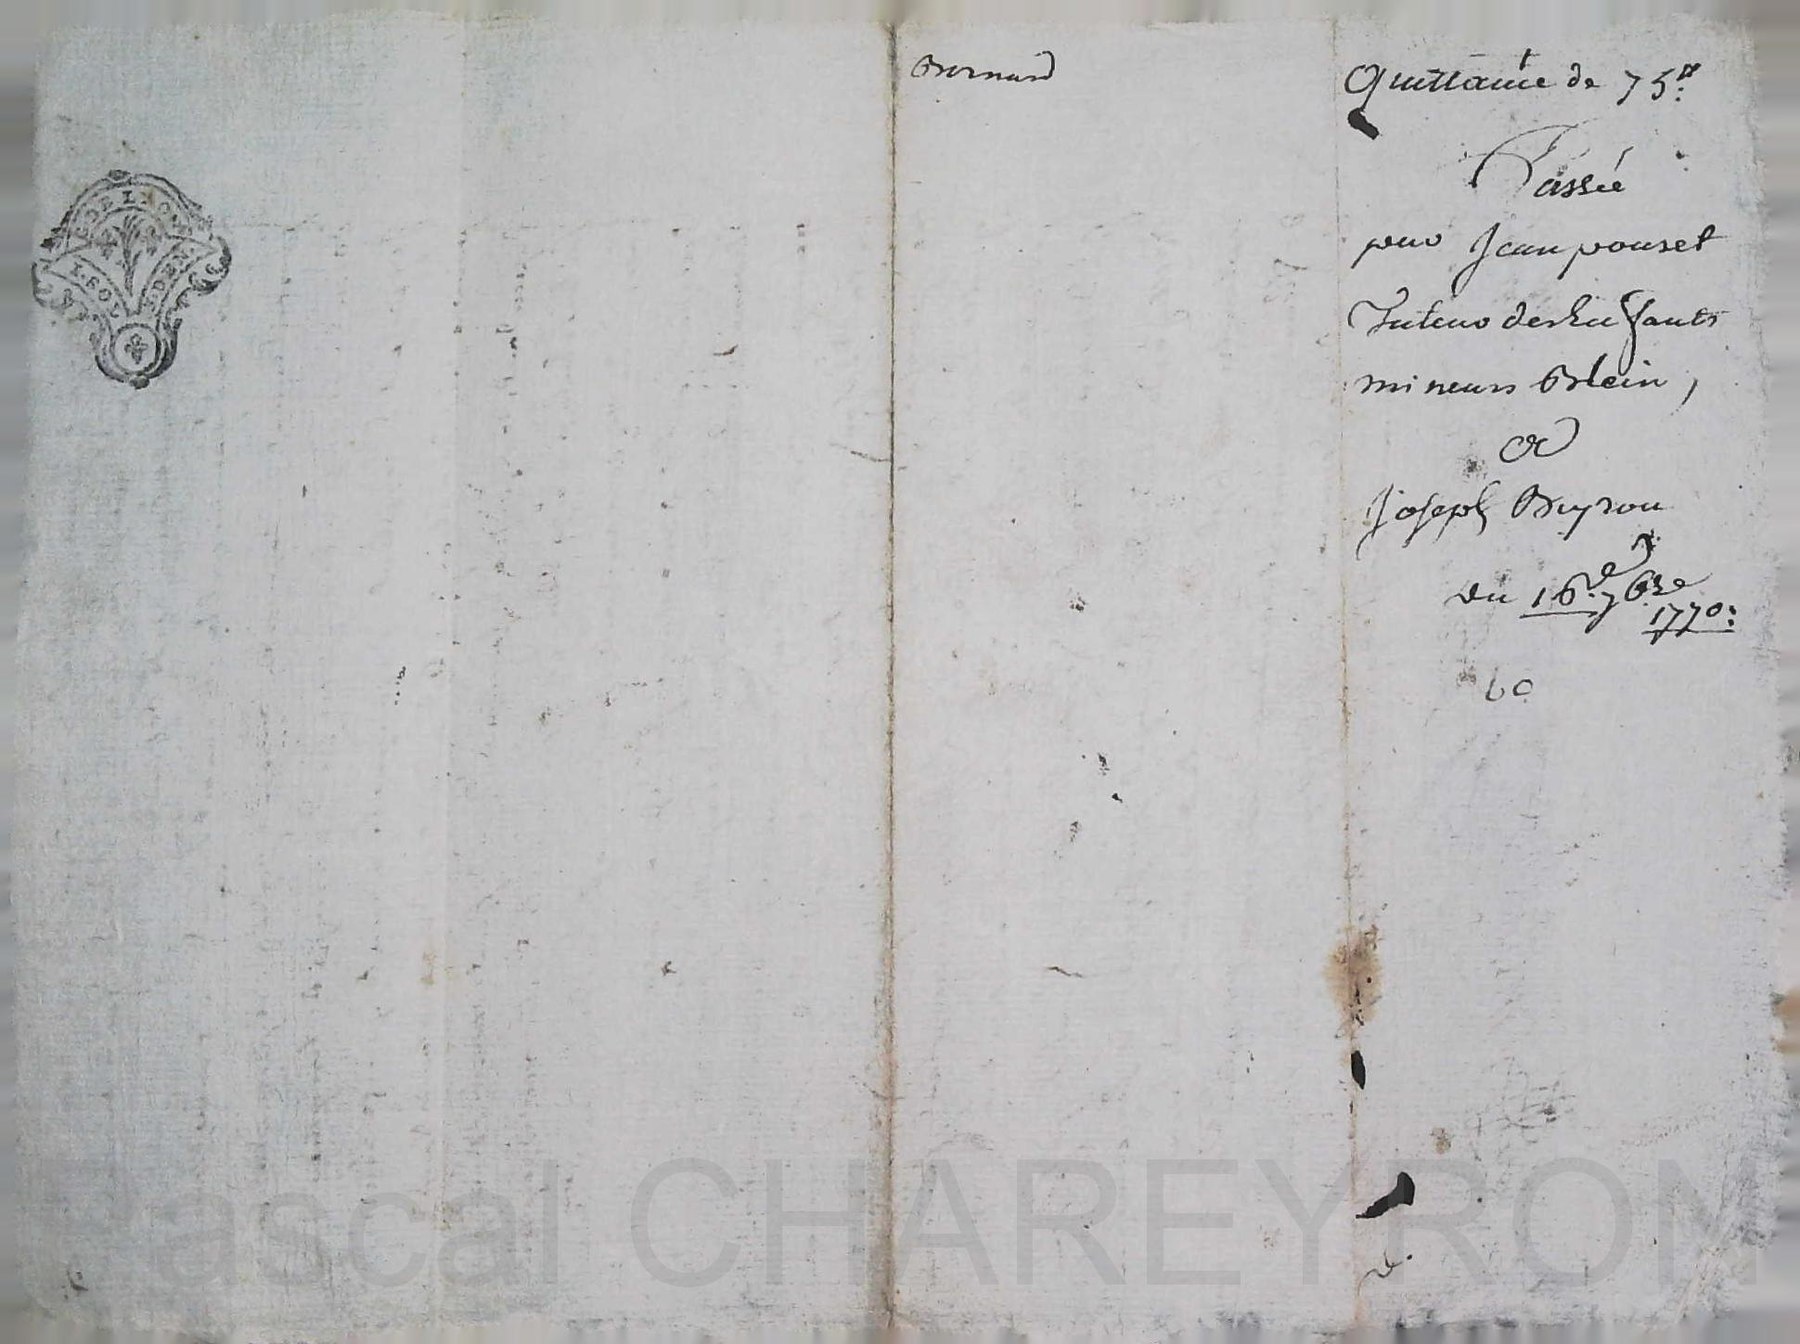 Bernard
Quittance de 75#
Passée
par Jean pouset
Tuteur des Enfants
mineurs Blein,
a
Joseph Buyron
Du 16e 7bre
1770:
60
DE LYON
Pascal CHAREYRON